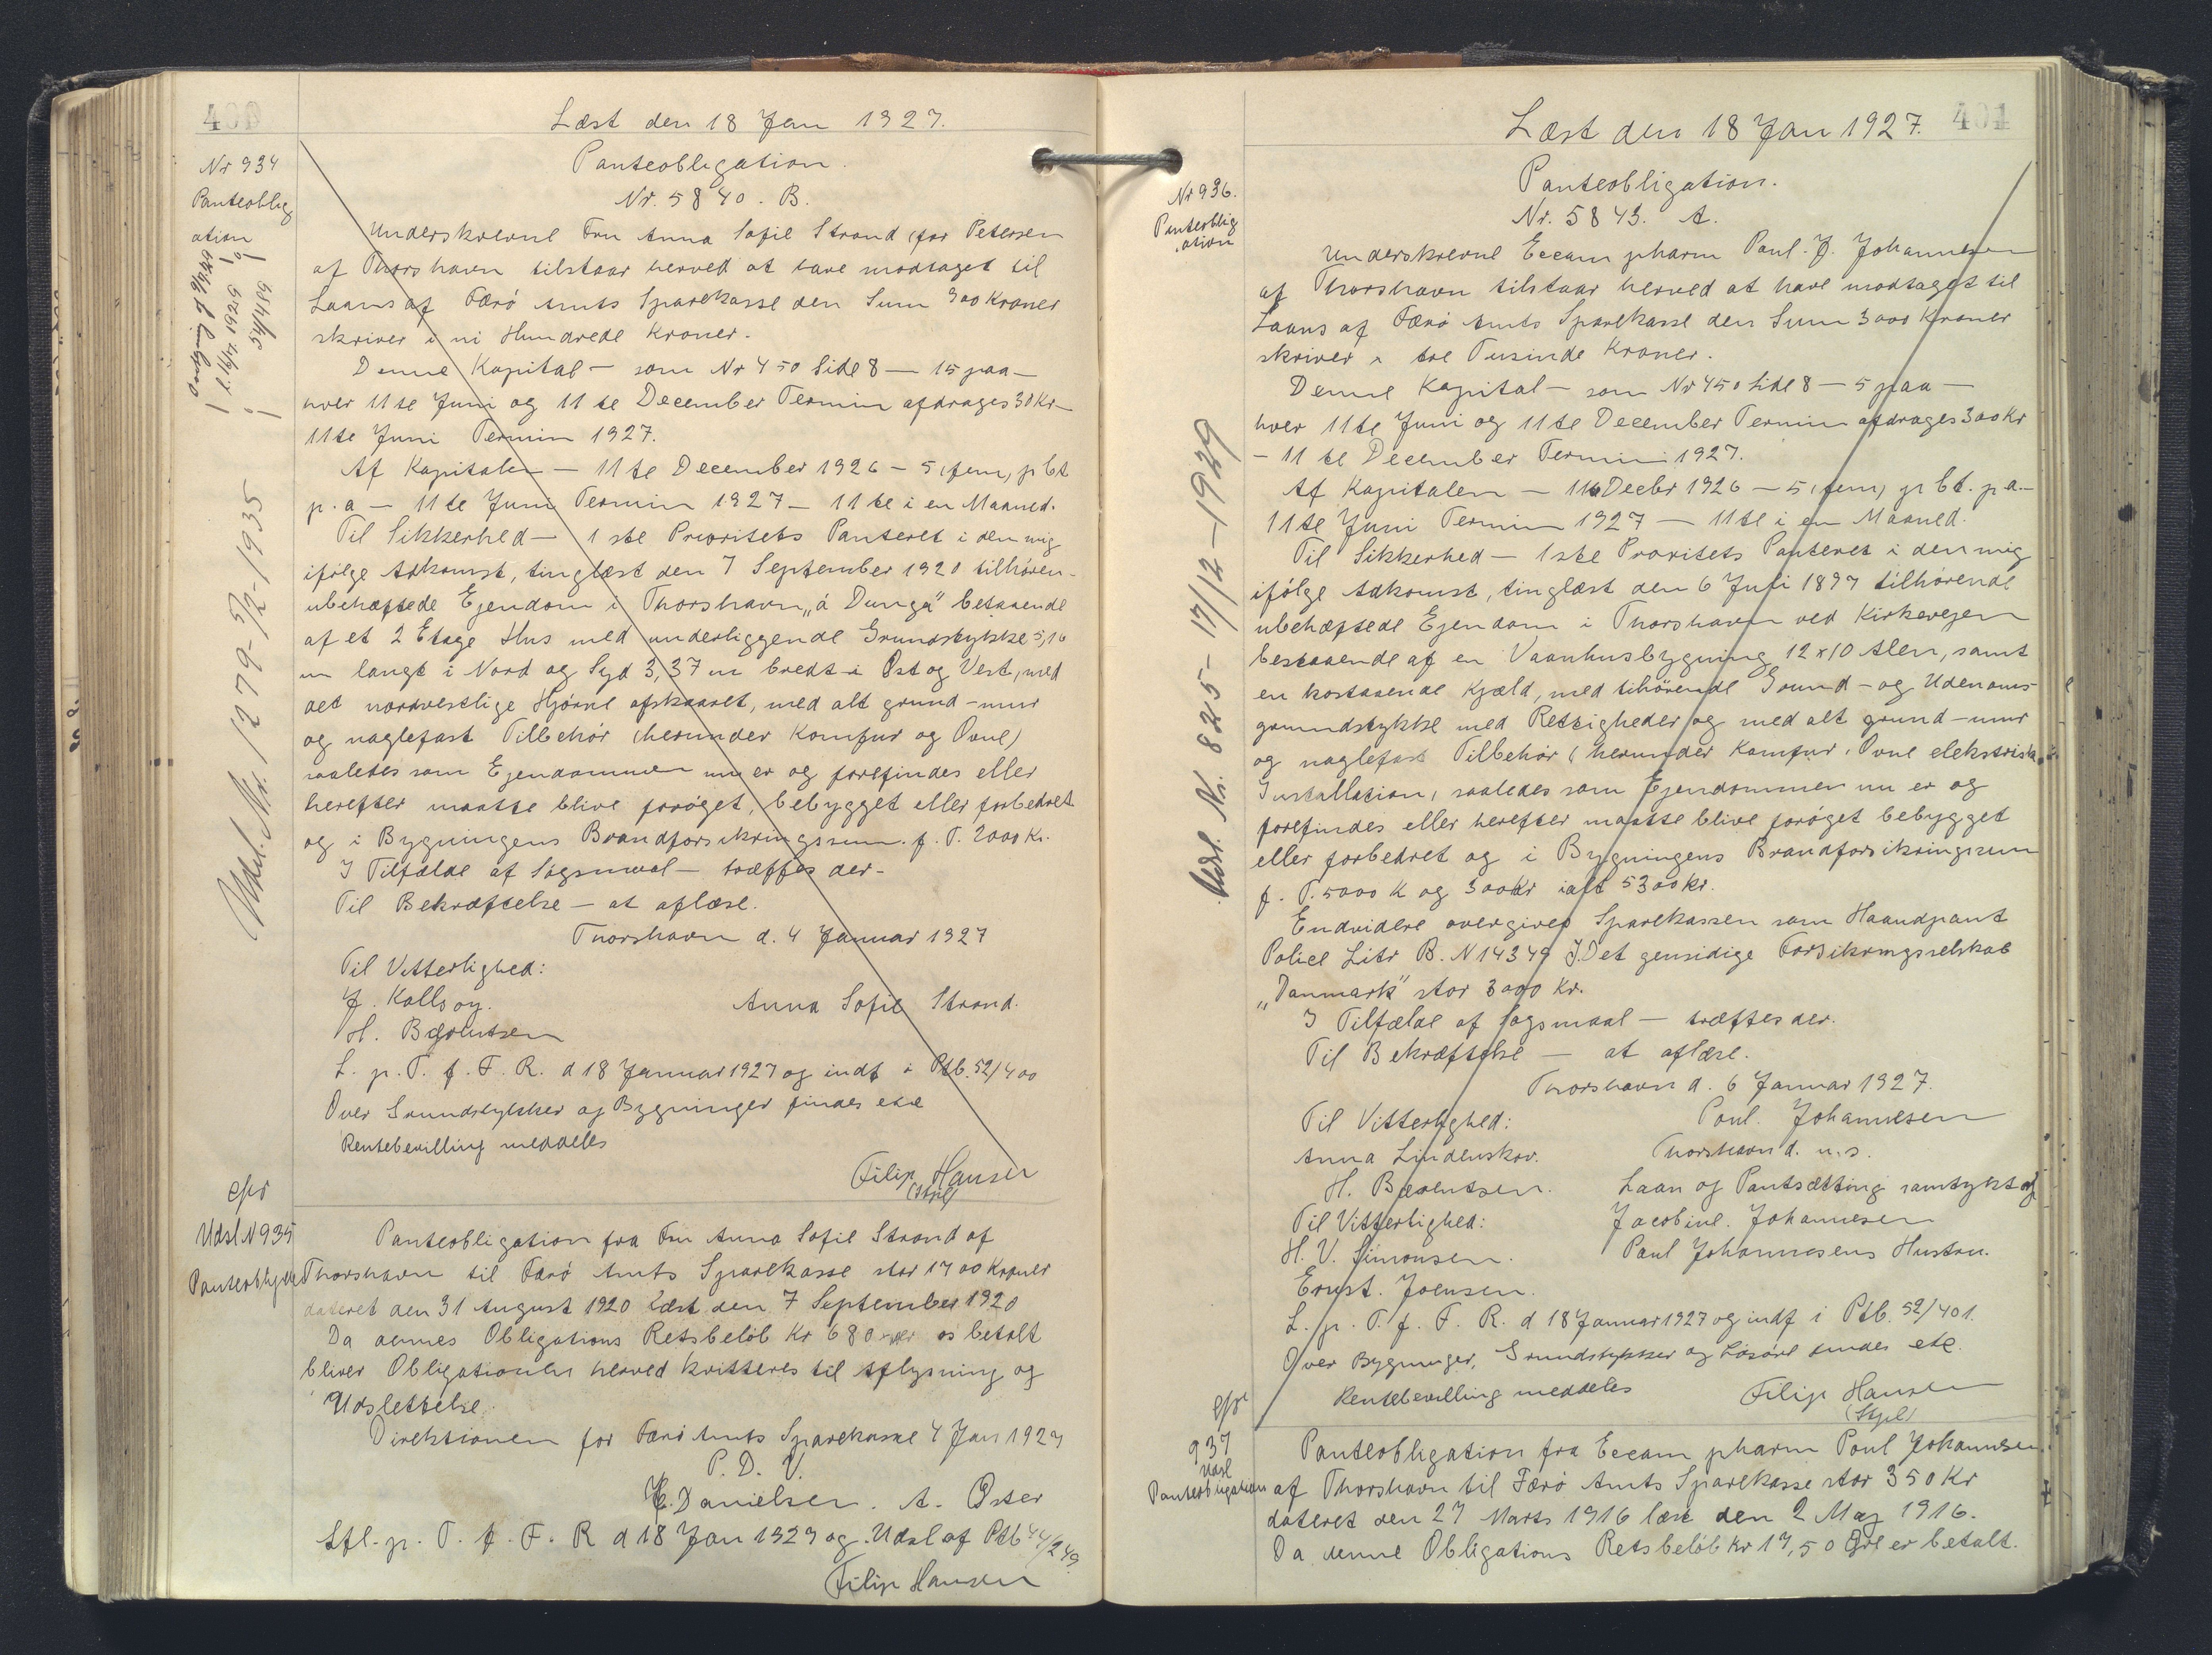 400
Læst den 18 Jan 1927.
Nr 934
Panteoblig
ation
Panteobligation.
Nr. 5840. B.
Underskrevne Fru Anna Sofie Strand for Petersen
af Thorshavn tilstaar herved at have modtaget til
Laans af Færø Amts Sparekasse den Sum 900 Kroner
skriver i ni Hundrede Kroner.
Denne Kapital – som Nr 450 Side 8 – 15 paa –
hver 11te Juni og 11te December Termin afdrages 30 Kr –
11te Juni Termin 1927.
Af Kapitalen – 11te December 1926 – 5, fem, pCt
p. a – 11te Juni Termin 1927 – 11te i en Maaned.
Til Sikkerhed – 1ste Prioritets Panteret i den mig
ifølge Adkomst, tinglæst den 7 September 1920 tilhøren-
ubehæftede Ejendom i Thorshavn „á Dunga“ bestaaende
af et 2 Etage Hus med underliggende Grundstykke 5,16
m langt i Nord og Syd 3,37 m bredt i Øst og Vest, med
det nordvestlige Hjørne afskaaret, med alt grund-mur
og naglefast Tilbehør (herunder Komfur og Ovne)
saaledes som Ejendommen nu er og forefindes eller
herefter maatte blive forøget, bebygget eller forbedret
og i Bygningens Brandforsikringssum. f. T. 2000 Kr.
I Tilfælde af Søgsmaal – træffes der-
Til Bekræftelse – at aflæse.
Thorshavn d. 4 Januar 1927
Til Vitterlighed:
J. Kallsoy. Anna Sofie Strand.
H. Bærentsen
L. p. T. f. F. R. d 18 Januar 1927 og indf i Ptb. 52/400
Over Grundstykker og Bygninger findes etc
Rentebevilling meddeles
Filip Hansen
(Stpl)
Udsl. Nr. 1279-3/12-1935
Udsl N 935
Panteobligation fra Fru Anna Sofie Strand af
Thorshavn til Færø Amts Sparekasse stor 1700 Kroner
dateret den 31 August 1920 Læst den 7 September 1920
Da dennes Obligations Restbeløb Kr 680 er os betalt
bliver Obligationen herved kvitteres til Aflysning og
Udslettelse.
Direktionen for Færø Amts Sparekasse 4 Jan 1927
P. D. V.
E. Danielsen. A. Øster
Afl. p. T. f. F. R d 18 Jan 1927 og Udsl af Ptb 44/249
Filip Hansen
401
Læst den 18 Jan 1927.
Nr 936.
Panteoblig
ation
Panteobligation.
Nr. 5843. A.
Underskrevne Eccam pharm Poul. J. Johannesen
af Thorshavn tilstaar herved at have modtaget til
Laans af Færø Amts Sparekasse den Sum 3000 Kroner
skriver i tre Tusinde Kroner.
Denne Kapital – som Nr 450 Side 8 – 5 paa –
hver 11te Juni og 11te December Termin afdrages 300 Kr
– 11te December Termin 1927.
Af Kapitalen – 11te Decbr 1926 – 5, fem, pCt. p a. –
11te Juni Termin 1927 – 11te i en Maaned.
Til Sikkerhed – 1ste Proritets Panteret i den mig
ifølge Adkomst, tinglæst den 6 Juli 1897 tilhørende
ubehæftede Ejendom i Thorshavn ved Kirkevejen
bestaaende af en Vaanhusbygning 12 x 10 Alen, samt
en hosstaaende Kjæld, med tilhørende Grund- og Udenoms-
grundstykke med Rettigheder og med alt grund-mur
og naglefast Tilbehør (herunder Komfur, Ovne elektrisk
Installation, saaledes som Ejendommen nu er og
forefindes eller herefter maatte blive forøget bebygget
eller forbedret og i Bygningens Brandforsikringsum
f. T. 5000 K og 300 Kr ialt 5300 Kr.
Endvidere overgives Sparekassen som Haandpant
Police Litr B. N 14349 I. Det gensidige Forsikringsselskab
„Danmark“ stor 3000 Kr.
I Tilfælde af Søgsmaal – træffes der.
Til Bekræftelse – at aflæse.
Thorshavn d. 6 Januar 1927.
Til Vitterlighed: Poul. Johannesen
Anna Lindenskov. Thorshavn d. u. s.
H. Bærentsen. Laan og Pantsætting samtykt af
Til Vitterlighed: Jacobine. Johannesen
H. V. Simonsen. Poul Johannesens Hustru.
Ernst. Joensen.
L. p. T. f. F. R. d 18 Januar 1927 og indf i Ptb. 52/401.
Over Bygninger, Grundstykker og Løsøre findes etc.
Rentebevilling meddeles Filip Hansen
(Stpl)
Udsl. Nr. 825- 17/12-1929
937
Udsl
Panteobligation
Panteobligation fra Eccam pharm Poul Johannesen
af Thorshavn til Færø Amts Sparekasse stor 350 Kr
dateret den 27 Marts 1916 læst den 2 Maj 1916.
Da denne Obligations Restbeløb Kr 17,50 Øre er betalt.